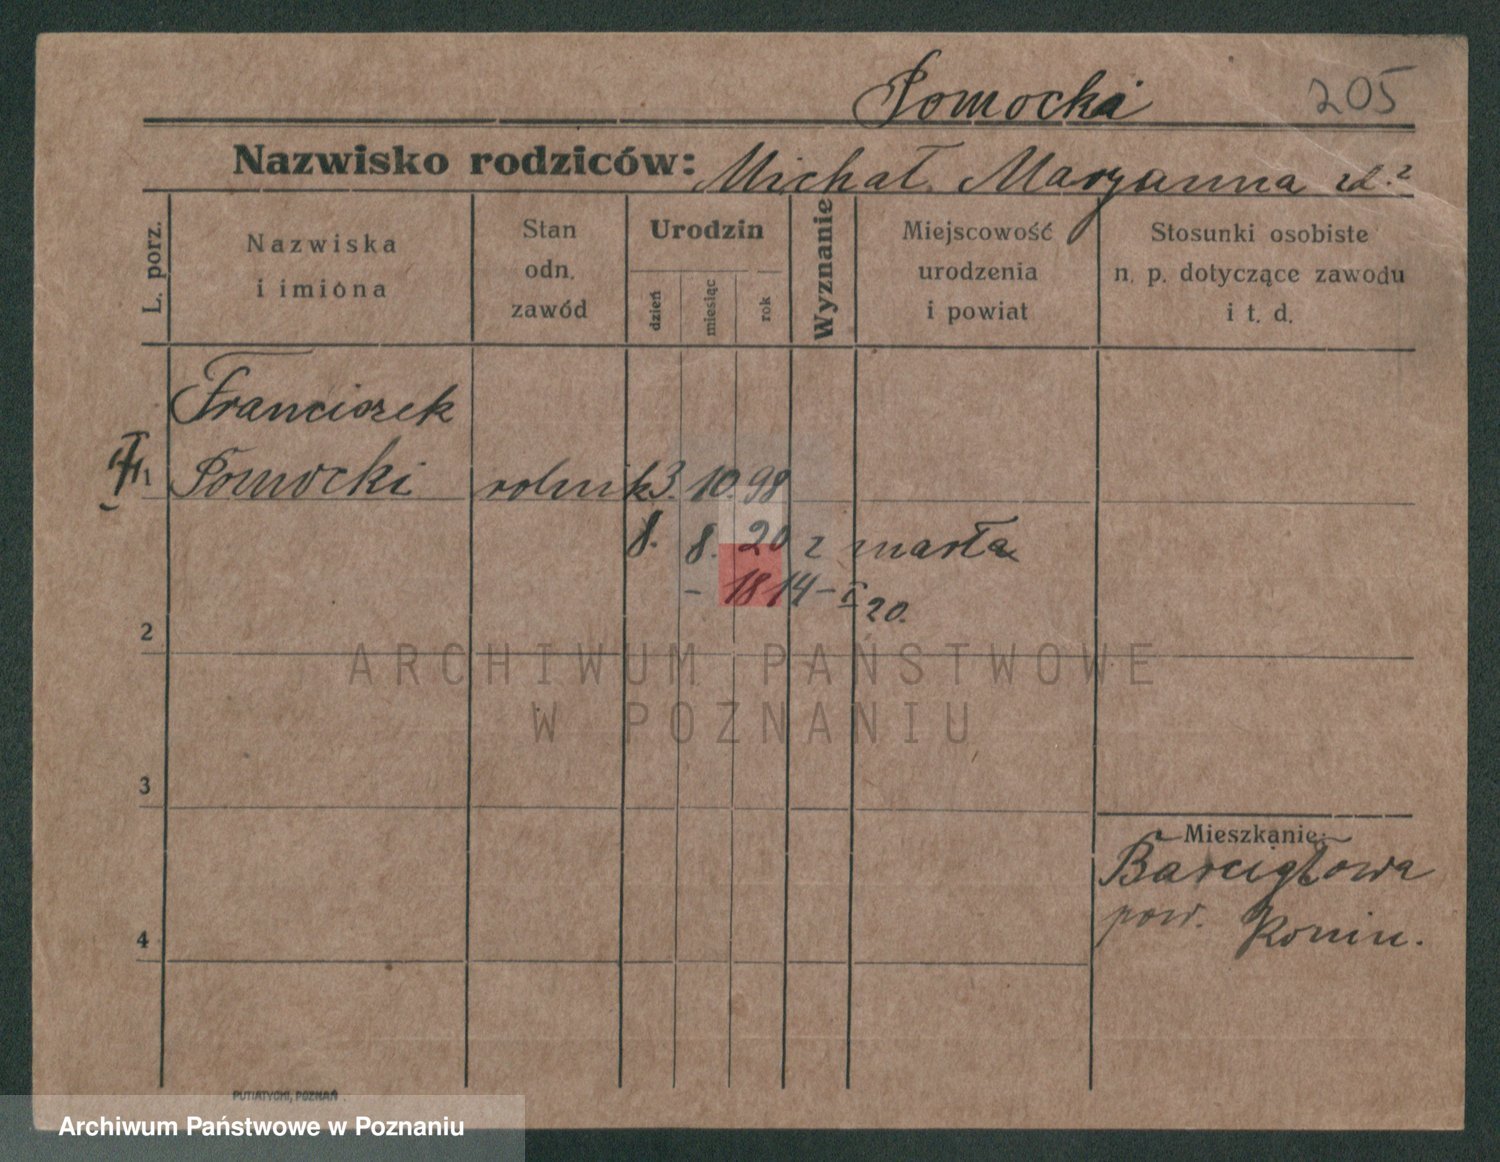 Pomocki 205
Nazwisko rodziców: Michał Maryanna
L. porz.
Nazwiska
i imiona
Stan
odn.
zawód
Urodzin
dzień
miesiąc
rok
Wyznanie
Miejscowość
urodzenia
i powiat
Stosunki osobiste
n. p. dotyczące zawodu
i t. d.
Franciszek
1 Pomocki rolnik 3. 10. 98
8. 8. 20 zmarła
- 1814 - I 20.
2
ARCHIWUM PAŃSTWOWE
W POZNANIU
3
Mieszkanie:
Barcigłowa
4 pow. Konin.
PUTIATYCKI, POZNAŃ
Archiwum Państwowe w Poznaniu